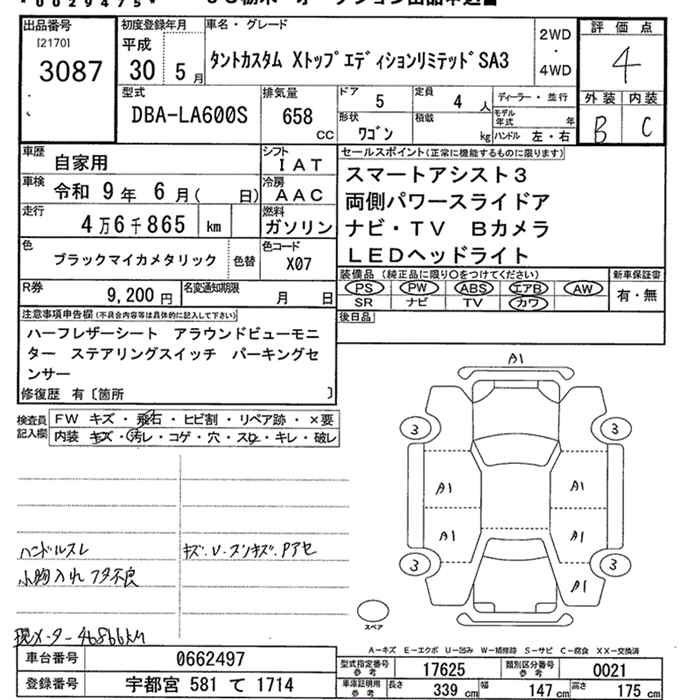 *0029475*
出品番号
[2170]
3087
初度登録年月
平成
30 5月
車名・グレード
タントカスタム Xトップエディションリミテッド SA3
2WD
・
4WD
評価点
4
外装 内装
B C
型式
DBA-LA600S
排気量
658
CC
ドア
5
定員
4 人
ディーラー・並行
モデル年式 年
形状
ワゴン
積載
kg
ハンドル 左・右
車歴
自家用
シフト
IAT
セールスポイント(正常に機能するものに限ります)
スマートアシスト3
両側パワースライドドア
ナビ・TV Bカメラ
LEDヘッドライト
車検
令和 9年 6月( 日)
冷房
AAC
走行
4万6千865 km
燃料
ガソリン
色
ブラックマイカメタリック
色替
色コード
X07
装備品(純正品に限り○をつけてください)
PS PW ABS エアB AW
SR ナビ TV カワ
新車保証書
有・無
R券
9,200円
名変通知期限
月 日
後日品
注意事項申告欄(不具合内容等は具体的に記入して下さい)
ハーフレザーシート アラウンドビューモニ
ター ステアリングスイッチ パーキングセ
ンサー
修復歴 有〔箇所 〕
検査員
記入欄
FW キズ・飛石・ヒビ割・リペア跡・×要
内装 キズ・汚レ・コゲ・穴・スレ・キレ・破レ
ハンドルスレ
小物入れフタ不良
現メーター46866km
A1
3
3
A1
A1
A1
A1
3
3
A1
スペア
A-キズ E-エクボ U-凹み W-補修跡 S-サビ C-腐食 XX-交換済
車台番号
0662497
登録番号
宇都宮 581 て 1714
型式指定番号
参考
17625
類別区分番号
参考
0021
車庫証明用
参考
長さ
339 cm
幅
147 cm
高さ
175 cm